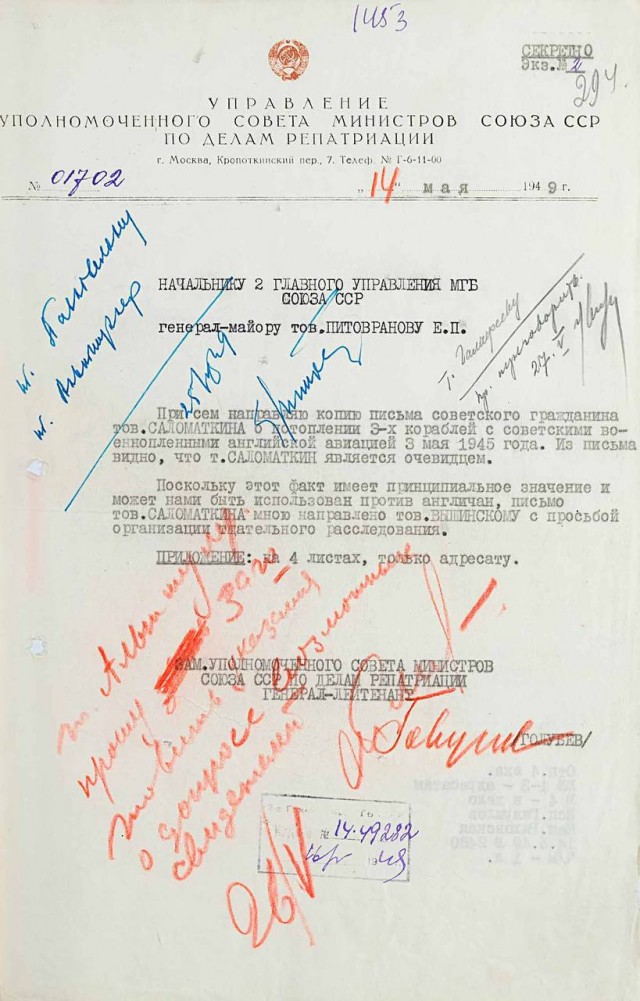 1453
СЕКРЕТНО
Экз.№ 2
294.
УПРАВЛЕНИЕ
УПОЛНОМОЧЕННОГО СОВЕТА МИНИСТРОВ СОЮЗА ССР
ПО ДЕЛАМ РЕПАТРИАЦИИ
г. Москва, Кропоткинский пер., 7. Телеф. № Г-6-11-00
№ 01702 „14" мая 1949 г.
НАЧАЛЬНИКУ 2 ГЛАВНОГО УПРАВЛЕНИЯ МГБ
СОЮЗА ССР
генерал-майору тов.ПИТОВРАНОВУ Е.П.
т.
т.
Т.
пр. переговорить.
27.V
При сем направляю копию письма советского гражданина
тов.САЛОМАТКИНА о потоплении 3-х кораблей с советскими во-
еннопленными английской авиацией 3 мая 1945 года. Из письма
видно, что т.САЛОМАТКИН является очевидцем.
Поскольку этот факт имеет принципиальное значение и
может нами быть использован против англичан, письмо
тов.САЛОМАТКИНА мною направлено тов.ВЫШИНСКОМУ с просьбой
организации тщательного расследования.
ПРИЛОЖЕНИЕ: на 4 листах, только адресату.
прошу
Заго
товить указания
о допросе возможных
свидетелей
26/V
ЗАМ.УПОЛНОМОЧЕННОГО СОВЕТА МИНИСТРОВ
СОЮЗА ССР ПО ДЕЛАМ РЕПАТРИАЦИИ
ГЕНЕРАЛ-ЛЕЙТЕНАНТ
/ГОЛУБЕВ/
№ 14.49232